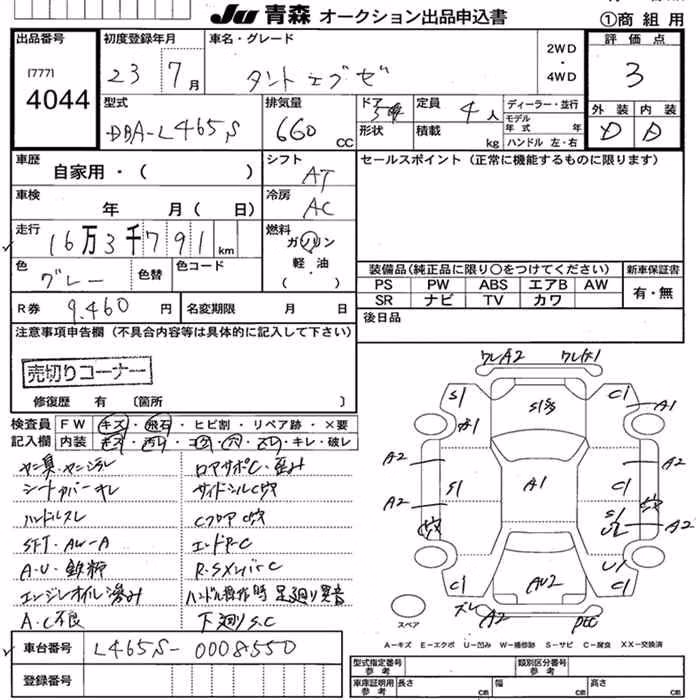 JU 青森 オークション出品申込書
①商 組 用
出品番号
(777)
4044
初度登録年月
23 7月
車名・グレード
タントエグゼ
2WD
・
4WD
評 価 点
3
外 装 内 装
D D
型式
DBA-L465S
排気量
660 CC
ドア
形状
定員 4人
積載 kg
ディーラー・並行
モデル
年 式 年
ハンドル 左・右
車歴
自家用・( )
シフト
AT
セールスポイント (正常に機能するものに限ります)
車検
年 月( 日)
冷房
AC
走行
16万3千791 km
燃料
ガソリン
軽・油
( )
色
グレー
色替
色コード
装備品(純正品に限り○をつけてください)
新車保証書
PS PW ABS エアB AW
SR ナビ TV カワ
有・無
R券 9,460 円
名変期限 月 日
後日品
注意事項申告欄 (不具合内容等は具体的に記入して下さい)
売切りコーナー
修復歴 有 〔箇所 〕
検査員
記入欄
FW キズ・飛石・ヒビ割・リペア跡・×要
内装 ・キレ・破レ
シートカバーキレ
サイドシルC穴
ハンドルスレ
CフロアC穴
SFT・AW-A
エンドR-C
A・U・鉄柄
エンジンオイル滲み
ハンドル操作時 足廻り異音
A・C不良
下廻りS.C
車台番号 L465S-0008550
登録番号
ワレA2
S1
A1
S1
C1
A1
A2
A2
S1
A1
C1
A2
A2
C1
AU2
U1
C1
ズレ
A2
スペア
A-キズ E-エクボ U-凹み W-補修跡 S-サビ C-腐食 XX-交換済
型式指定番号
参 考
類別区分番号
参 考
車庫証明用
参 考
長さ cm
幅 cm
高さ cm